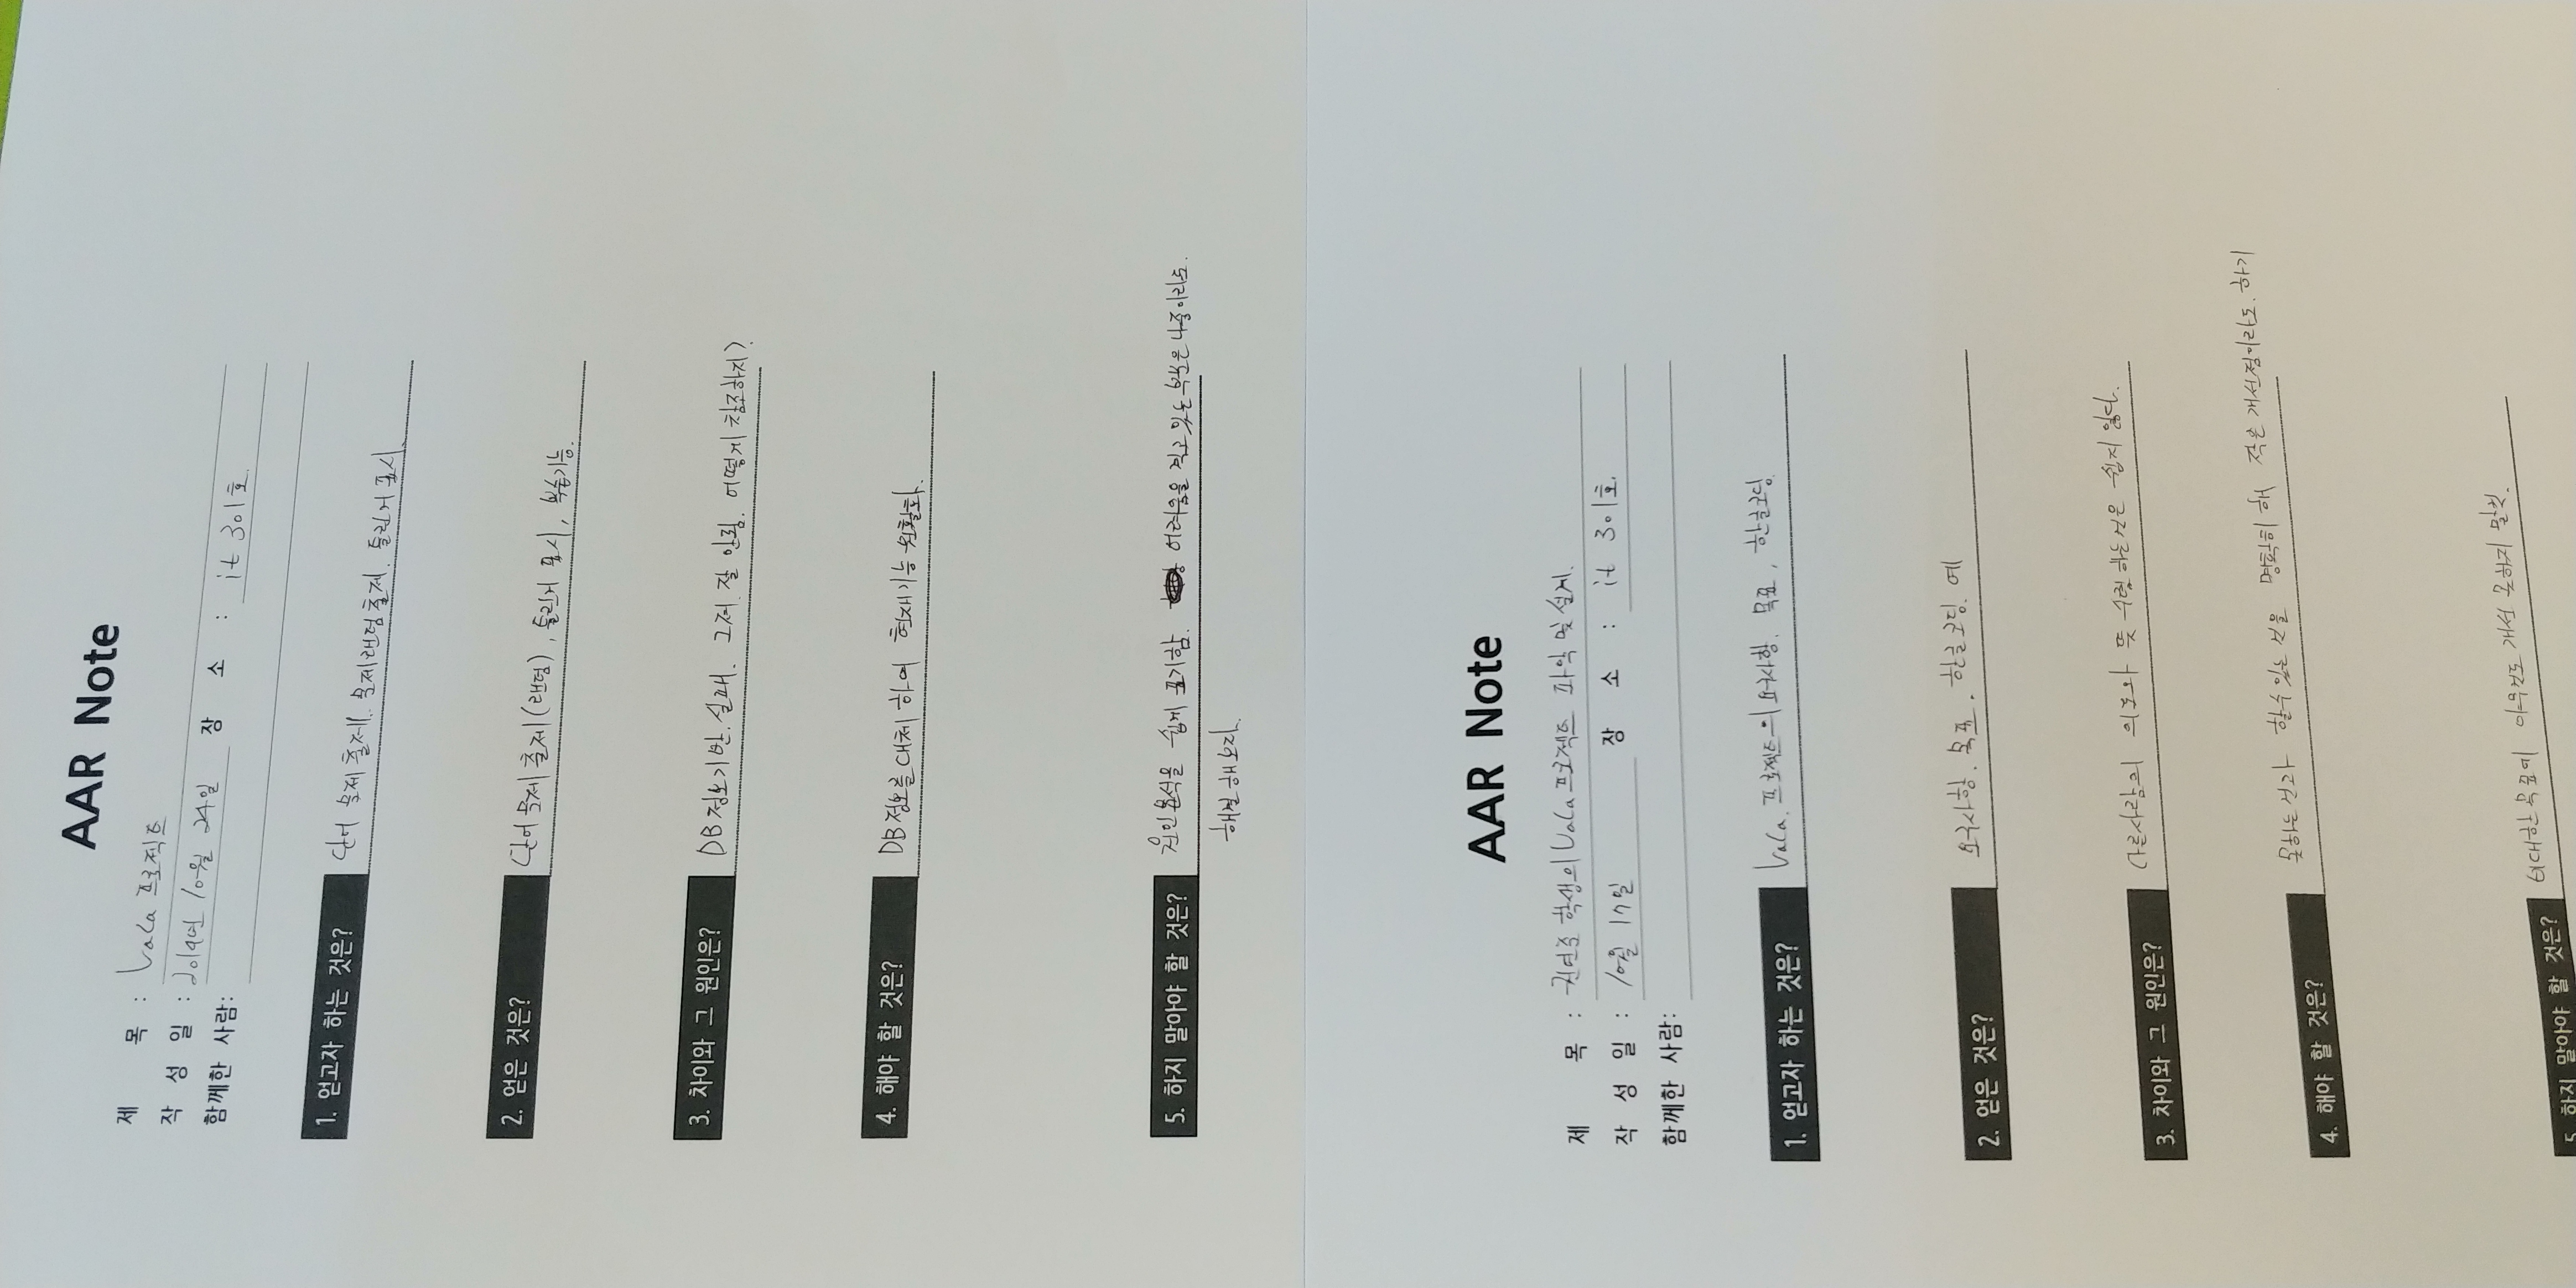 AAR Note
제 목 : VaCa 프로젝트
작 성 일 : 2019년 10월 24일 장 소 : it 301호.
함께한 사람:
1. 얻고자 하는 것은? 단어 문제 출제. 문제랜덤출제. 틀린거 표시.
2. 얻은 것은? 단어 문제 출제(랜덤), 틀린거 표시, 복습기능.
3. 차이와 그 원인은? DB정보기반. 실패. 그저 잘 안됨. 어떻게 참조하지?
4. 해야 할 것은? DB정보를 대체 하여 현재기능 원활화.
5. 하지 말아야 할 것은? 원인분석을 쉽게 포기함. 어려움을 겪고 있는 부분은 나중이라도.
해결해보자.
AAR Note
제 목 : 학생의 VaCa프로젝트 파악 및 설계.
작 성 일 : 10월 17일 장 소 : it 301호.
함께한 사람:
1. 얻고자 하는 것은? VaCa. 프로젝트의 요구사항. 목표, 한글코딩.
2. 얻은 것은? 요구사항. 목표. 한글코딩. 예
3. 차이와 그 원인은? 다른사람의 의도와 뜻 수렴하는것은 쉽지 않다.
4. 해야 할 것은? 못하는것과 할수있는 것을 명확히 해 작은 개선점이라도. 하기
5. 하지 말아야 할 것은? 거대한목표에 아무것도 개선 못하지 말것.